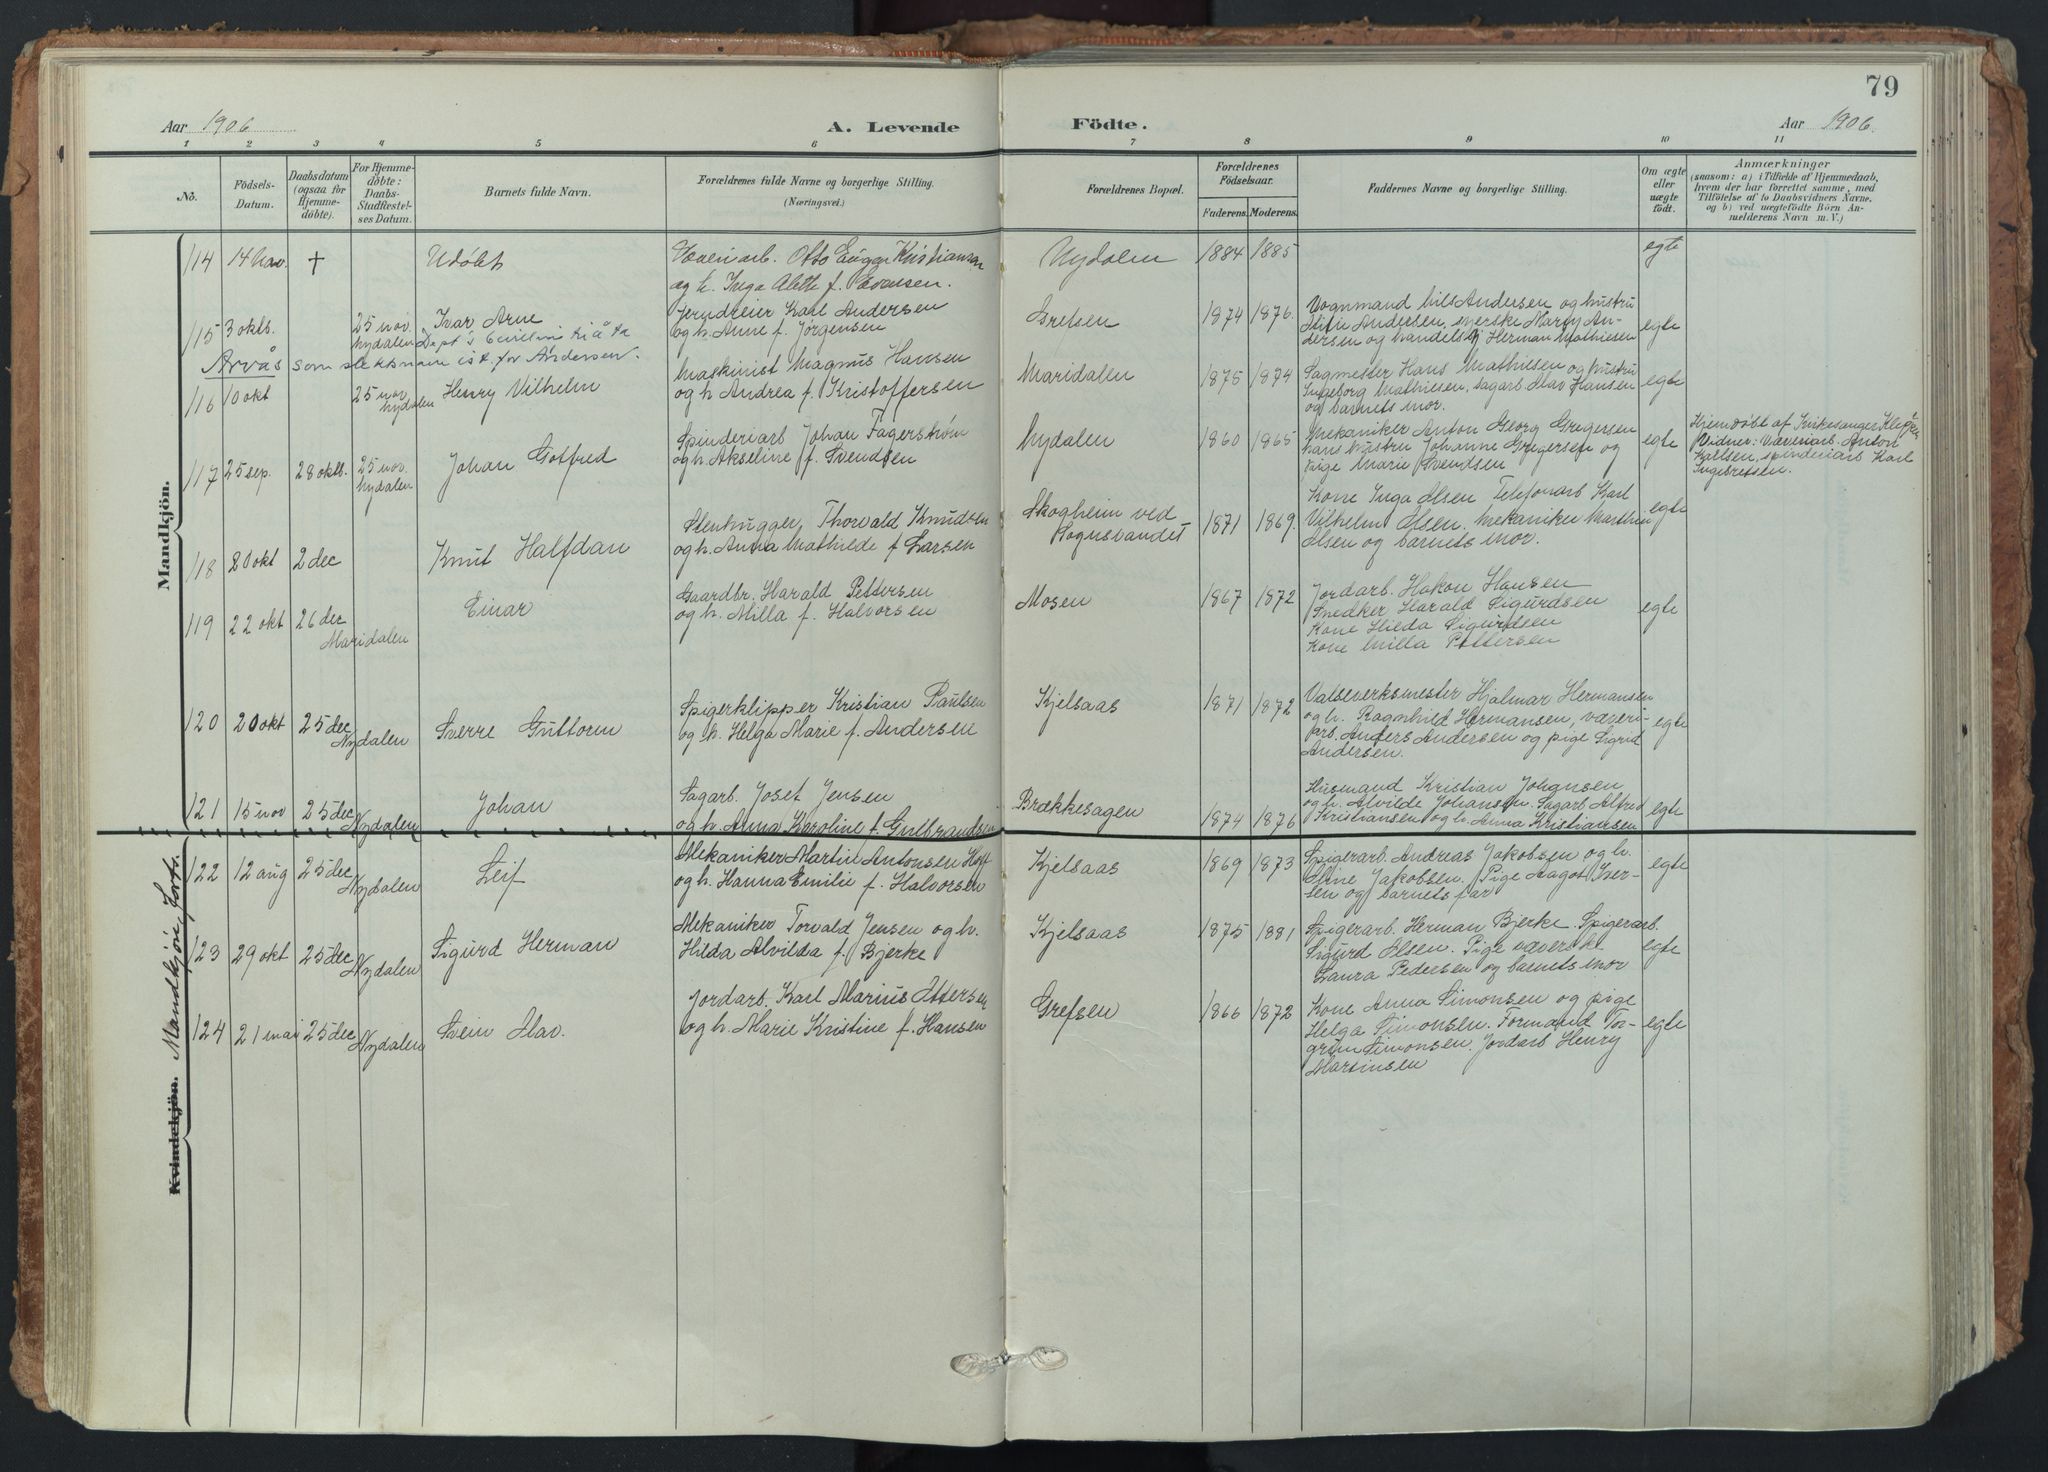 79
Aar 1906
A. Levende
Födte.
Aar 1906.
1 2 3 4 5 6 7 8 9 10 11
No.
Födsels-
Datum.
Daabsdatum
(ogsaa for
Hjemme-
döbte).
For Hjemme-
döbte:
Daabs-
Stadfæstel-
ses Datum.
Barnets fulde Navn.
Forældrenes fulde Navne og borgerlige Stilling.
(Næringsvei.)
Forældrenes Bopæl.
Forældrenes
Födselsaar.
Faderens. Moderens.
Faddernes Navne og borgerlige Stilling.
Om ægte
eller
uægte
födt.
Anmærkninger
(saasom: a) i Tilfælde af Hjemmedaab,
hvem der har forrettet samme, med
Tilföielse af to Daabsvidners Navne,
og b) ved uægtefödte Börn An-
melderens Navn m. V.)
Mandkjön.
114 14 Nov. † Udöbt
Væveriarb. Otto Kristiansen
og h. Inga f. Evensen.
Nydalen 1884 1885
egte
115 3 oktb. 25 nov. Nydalen Ivar Arne
Karl Andersen
og h. Anne f. Jörgensen
Grefsen 1874 1876.
Vognmand Nils Andersen og hustru
Andersen, syerske Marry An-
dersen og Herman Mathiesen
egte
Arvås som slektsnavn ist. for Andersen.
116 10 okt 25 nov Nydalen Henry Vilhelm
Maskinist Magnus Hansen
og h Andrea f. Kristoffersen
Maridalen 1875 1874
Sagmester Hans Mathiesen og hustru
Ingeborg Mathiesen, sagarb. Olav Hansen
og barnets mor.
egte
117 25 sep. 28 oktb. 25 nov. Nydalen Johan Gotfred
Spinderiarb Johan Fagerström
og h. Akseline f. Svendsen
Nydalen 1860 1865
Mekaniker Anton Georg Gregersen
hans hustru Johanne Gregersen og
pige Marie Svendsen
egte
Hjemdöbt af Kirkesanger
Vidner: Væveriarb. Anton
Karlsen, spinderiarb Karl
Ingebretsen.
118 20 okt 2 dec Knut Halfdan
Stenhugger Thorvald Knudsen
og h. Anna Mathilde f Larsen
Skogheim ved
Sognsvandet
1871 1869.
Kone Inga Olsen Telefonarb Karl
Vilhelm Olsen. Mekaniker
Olsen og barnets mor.
egte
119 22 okt 26 dec Maridalen Einar
Gaardbr. Harald Pettersen
og h. Milla f. Halvorsen
Mosen 1867 1872
Jordarb. Hakon Hansen
Snedker Harald Sigurdsen
Kone Hilda Sigurdsen
Kone Milla Pettersen
egte
120 20 okt 25 dec Nydalen Sverre Guttorm
Spigerklipper Kristian Paulsen
og h. Helga Marie f. Andersen
Kjelsaas 1871 1872
Valseverksmester Hjalmar Hermansen
og h. Ragnhild Hermansen, væveri-
arb. Anders Andersen og pige Sigrid
Andersen.
egte
121 15 nov 25 dec Nydalen Johan
Sagarb. Josef Jensen
og h. Anna Karoline f. Gulbrandsen
Brækkesagen 1874 1876
Husmand Kristian Johansen
og h. Alvilde Johansen. Sagarb. Alfred
Kristiansen og h. Anna Kristiansen
egte
Kvindekjön. Mandkjön, forts.
122 12 aug 25 dec Nydalen Leif
Mekaniker Martin Antonsen Hoff
og h. Hanna Emilie f. Halvorsen
Kjelsaas 1869 1873
Spigerarb. Andreas Jakobsen og h.
Oline Jakobsen. Pige Aagot Iver-
sen og barnets far
egte
123 29 okt 25 dec Nydalen Sigurd Herman
Mekaniker Torvald Jensen og h.
Hilda Alvilda f. Bjerke
Kjelsaas 1875 1881
Spigerarb. Herman Bjerke Spigerarb.
Sigurd Olsen. Pige væverske
Laura Pedersen og barnets mor
egte
124 21 mai 25 dec Nydalen Svein Olav.
Jordarb. Karl Marius Ottersen
og h. Marie Kristine f. Hansen
Grefsen 1866 1872
Kone Anna Simonsen og pige
Helga Simonsen. Formand Tor-
grim Simonsen. Jordarb Henry
Martinsen
egte